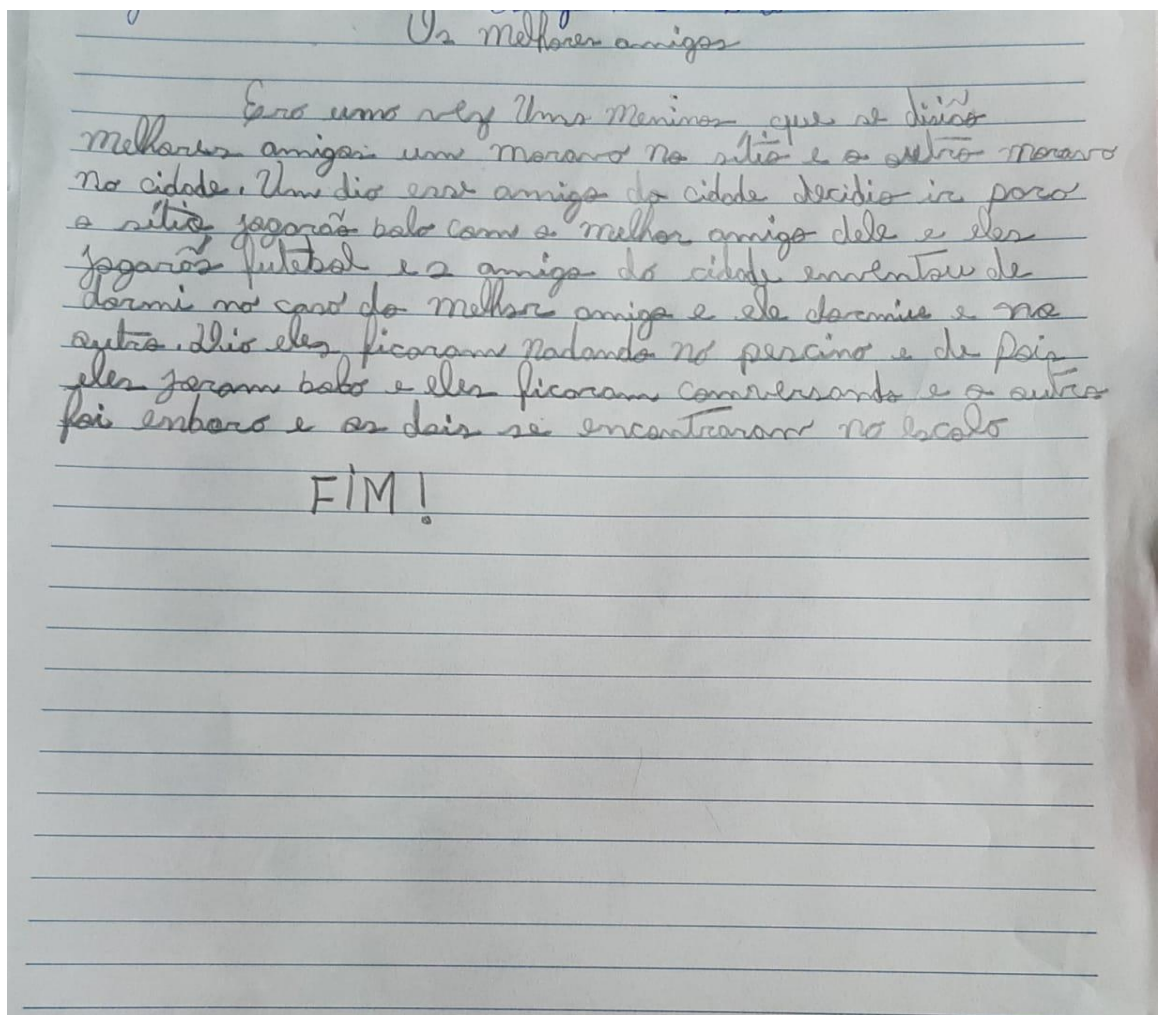 Os melhores amigos
Era uma vez Uns Meninos que se disião
melhores amigos um morava no sitio e o outro morava
na cidade. Um dia esse amigo da cidade decidio ir para
o sitio jogarão bola com o melhor amigo dele e eles
jogarão futebol e o amigo da cidade enventou de
dormi na casa do melhor amigo e ele dormiu e no
outro. Dia eles ficaram nadando na percina e de pois
eles joram bola e eles ficaram comversando e o outro
foi enbora e os dois se encontraram na escola
FIM!